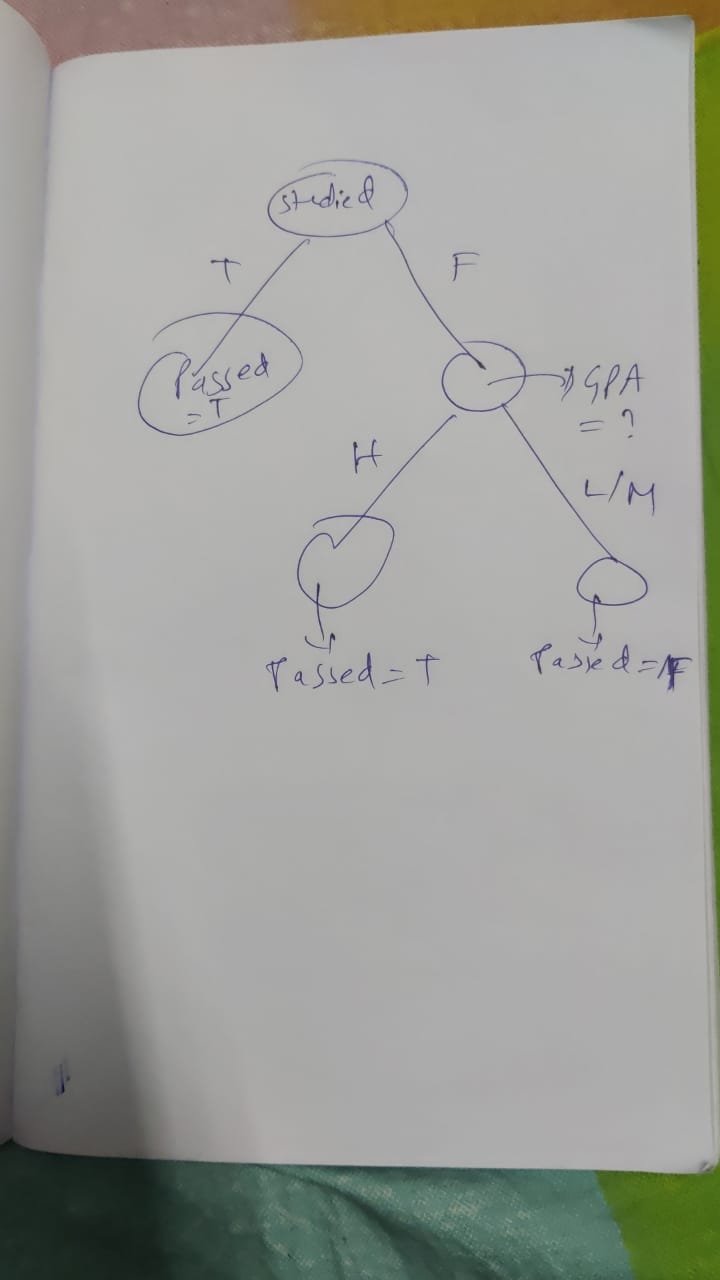 studied
T
F
Passed
= T
GPA
= ?
H
L/M
Passed = T
Passed = F